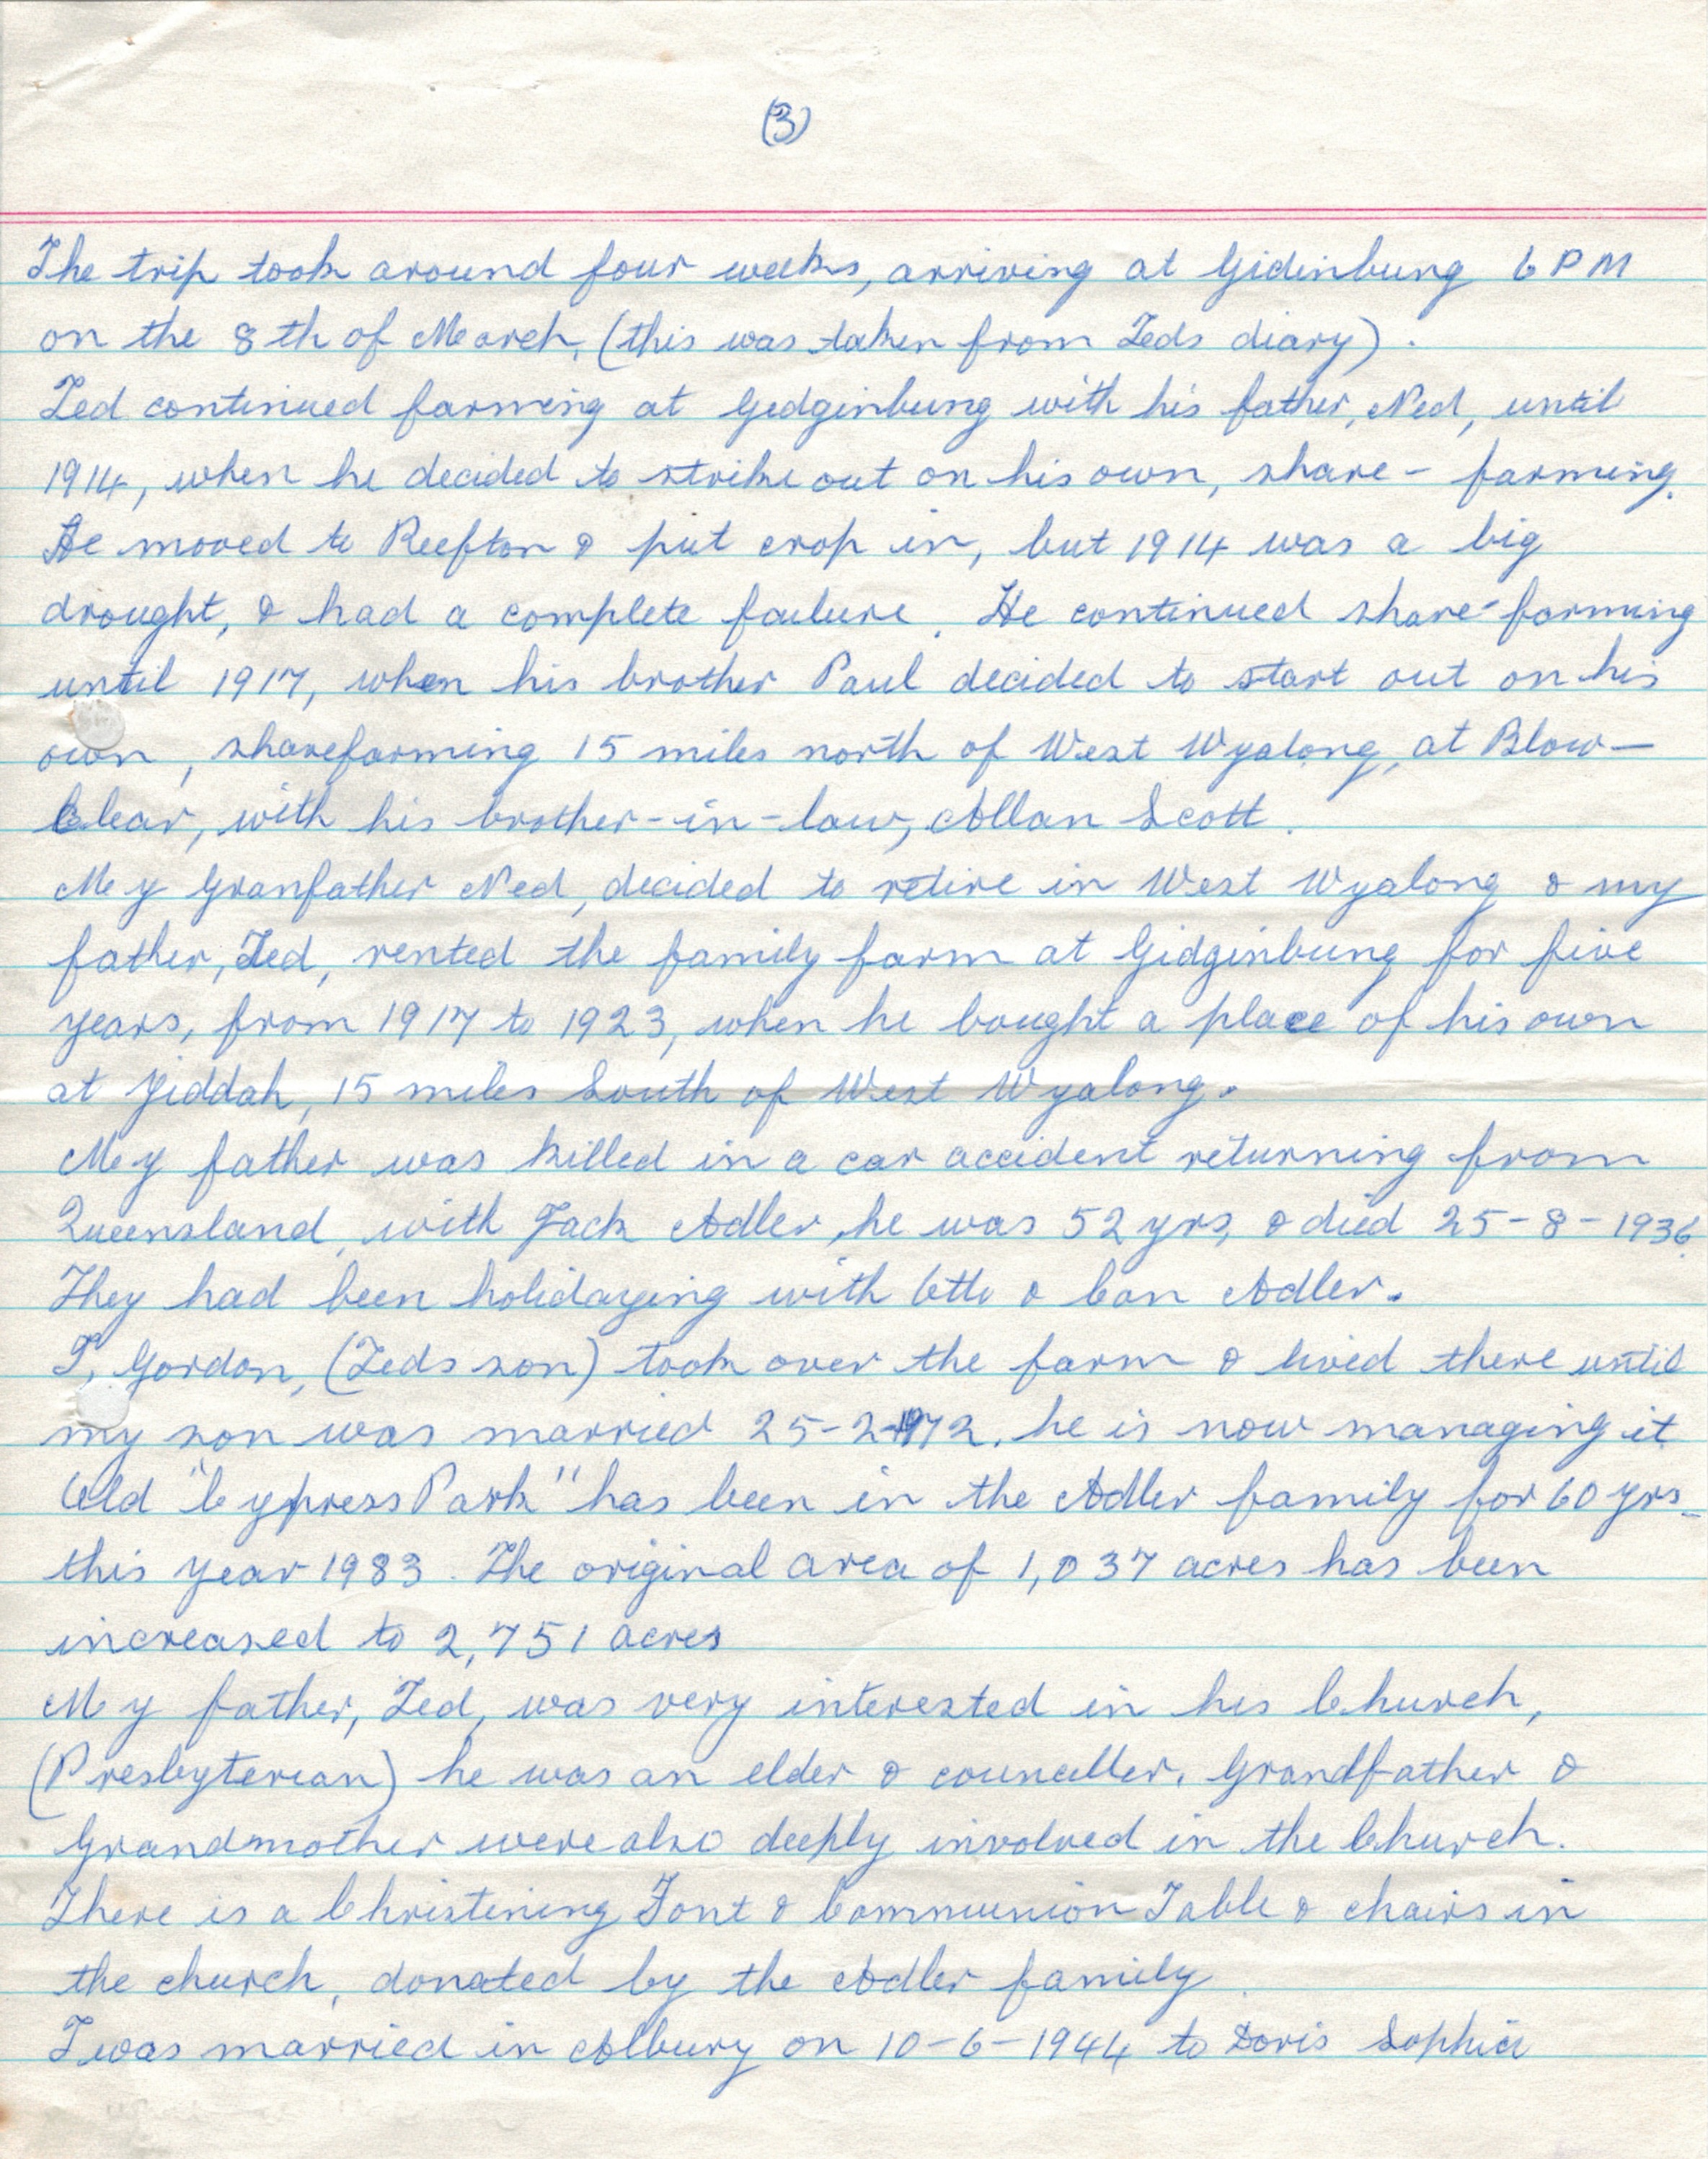 (3)
The trip took around four weeks, arriving at Gidinbung 6 PM
on the 8th of March, (this was taken from Teds diary).
Ted continued farming at Gedginbung with his father, Ned, until
1914, when he decided to strike out on his own, share-farming.
He moved to Reefton & put crop in, but 1914 was a big
drought, & had a complete failure. He continued share-farming
until 1917, when his brother Paul decided to start out on his
own, sharefarming 15 miles north of West Wyalong, at Blow-
Clear, with his brother-in-law, Allan Scott.
My Granfather Ned, decided to retire in West Wyalong & my
father, Ted, rented the family farm at Gidginbung for five
years, from 1917 to 1923, when he bought a place of his own
at Yiddah, 15 miles South of West Wyalong.
My father was killed in a car accident returning from
Queensland, with Jack Adler, he was 52 yrs, & died 25-8-1936.
They had been holidaying with Otto & Con Adler.
I, Gordon, (Teds son) took over the farm & lived there until
my son was married 25-2-1972. he is now managing it.
Old "Cypress Park" has been in the Adler family for 60 yrs
this year 1983. The original area of 1,037 acres has been
increased to 2,751 acres
My father, Ted, was very interested in his Church,
(Presbyterian) he was an elder &ounceller. Grandfather &
Grandmother were also deeply involved in the Church.
There is a Christining Font & Communion Table & chairs in
the church, donated by the Adler family.
I was married in Albury on 10-6-1944 to Doris Sophia